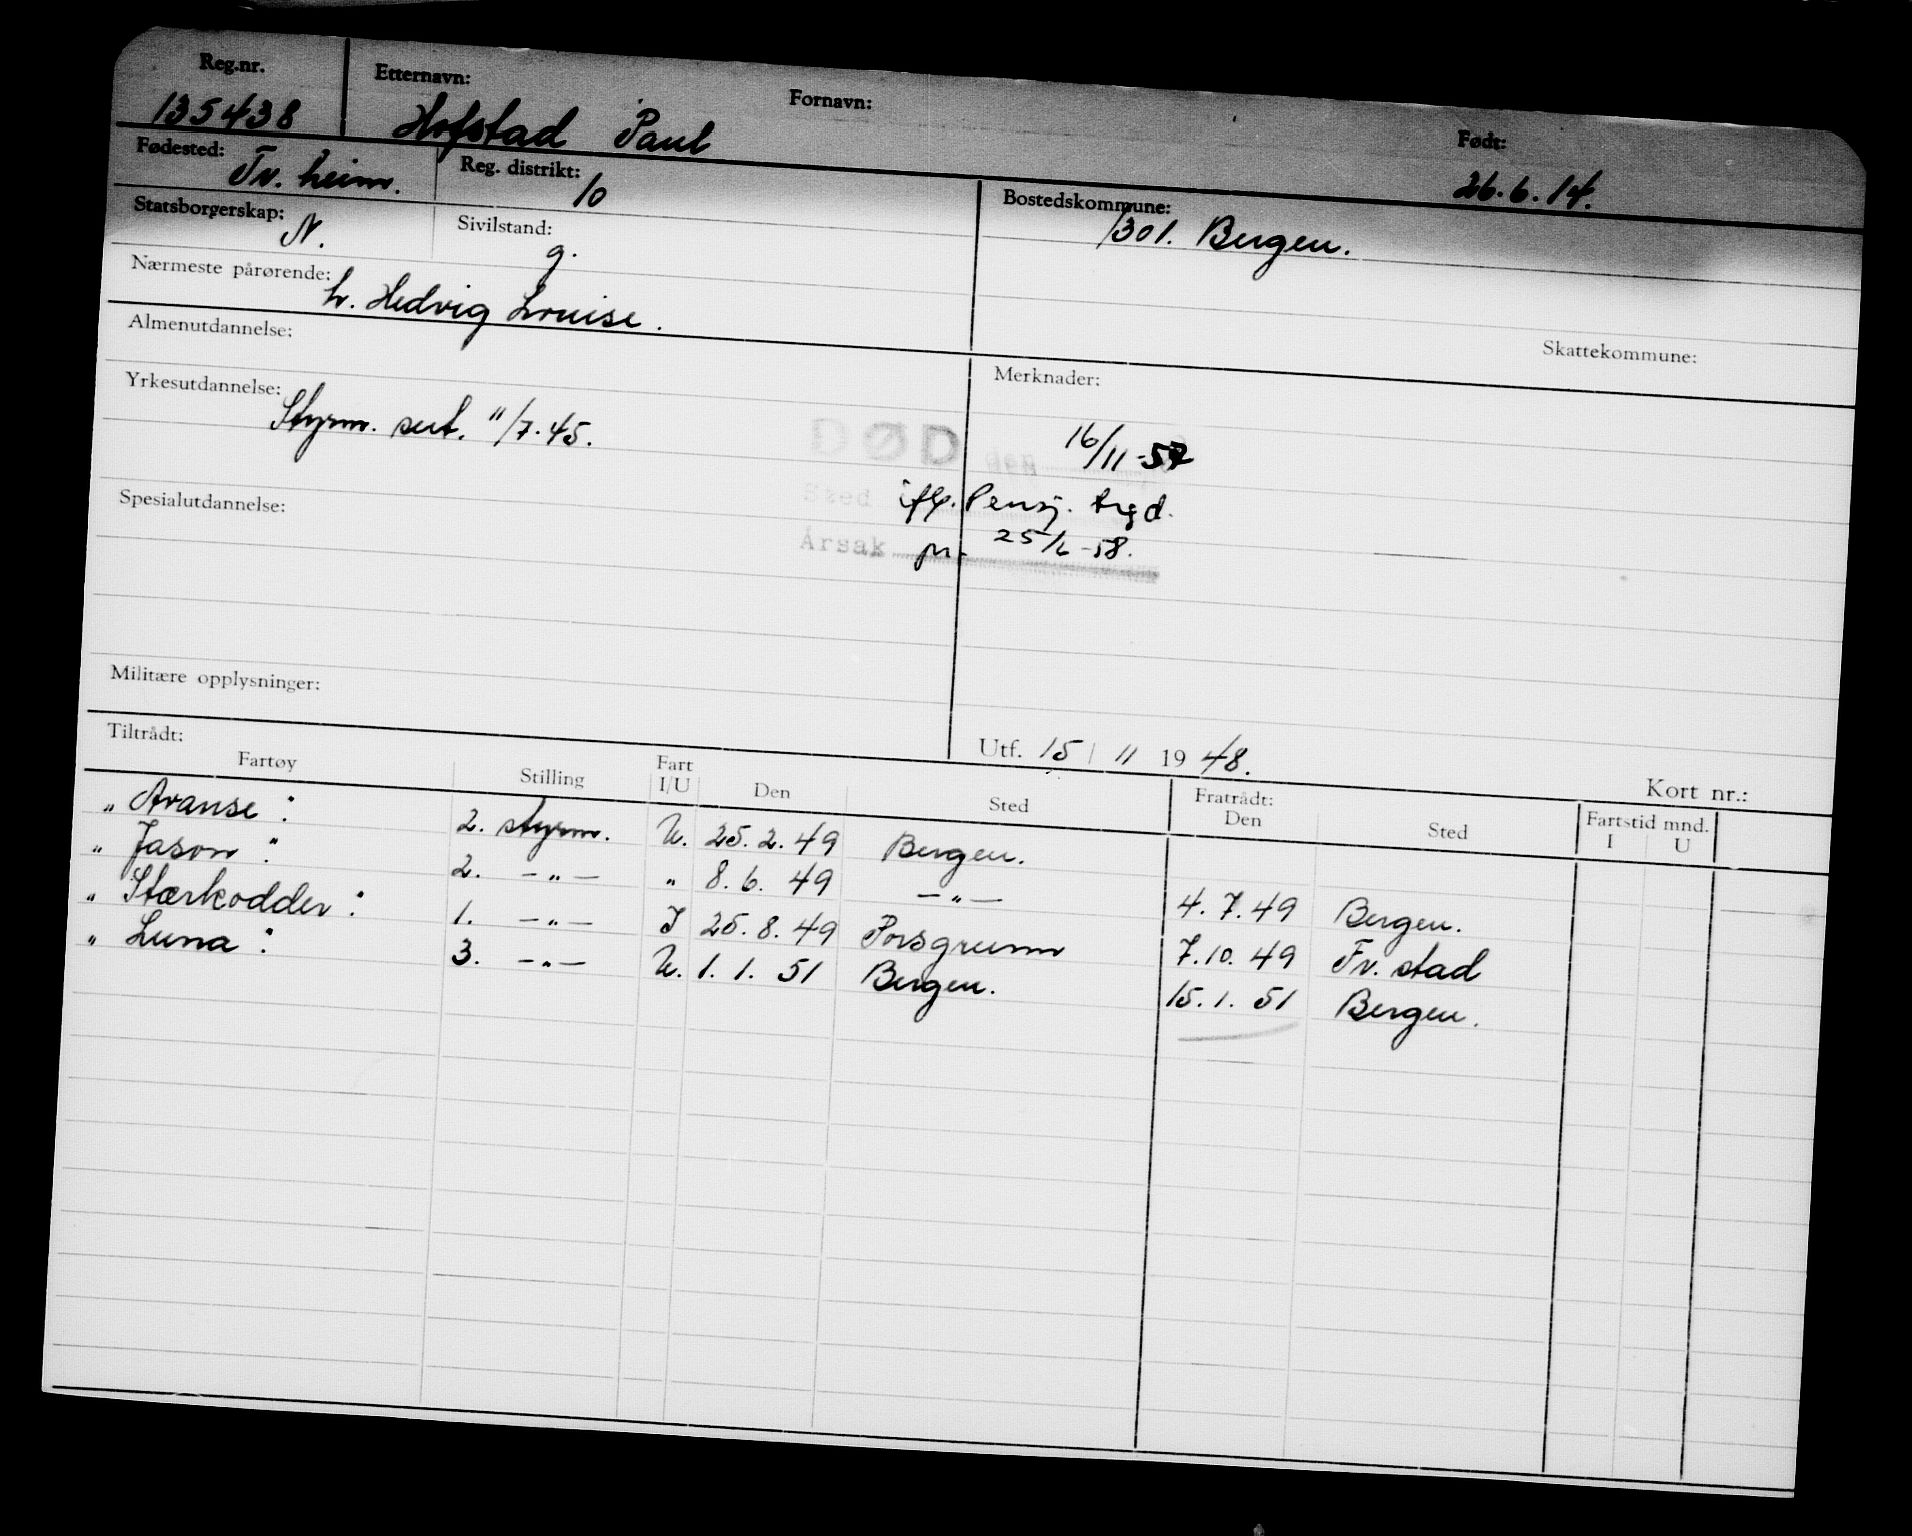 Reg.nr. Etternavn: Fornavn: Født:
135438 Hofstad Paul 26.6.14.
Fødested: Tr. heim. Reg. distrikt: 10 Bostedskommune: 1301. Bergen.
Statsborgerskap: N. Sivilstand: g.
Nærmeste pårørende: h. Hedvig Louise.
Skattekommune:
Almenutdannelse:
Merknader:
Yrkesutdannelse: Styrm. sert. 11/7.45.
DØD den 16/11-57
Sted ifly. Pensj. trgd.
Årsak pr. 25/6-58.
Spesialutdannelse:
Militære opplysninger:
Utf. 15 / 11 1948.
Kort nr.:
Tiltrådt: Fratrådt: Fartstid mnd.
Fartøy Stilling Fart I/U Den Sted Den Sted I U
„ Aranse : 2. styrm. U. 25.2.49 Bergen.
„ Jason : 2. —„— „ 8.6.49 —„— 4.7.49 Bergen.
„ Stærkodder : 1. —„— I 25.8.49 Porsgrunn 7.10.49 Fr. stad
„ Luna : 3. —„— U. 1.1.51 Bergen. 15.1.51 Bergen.